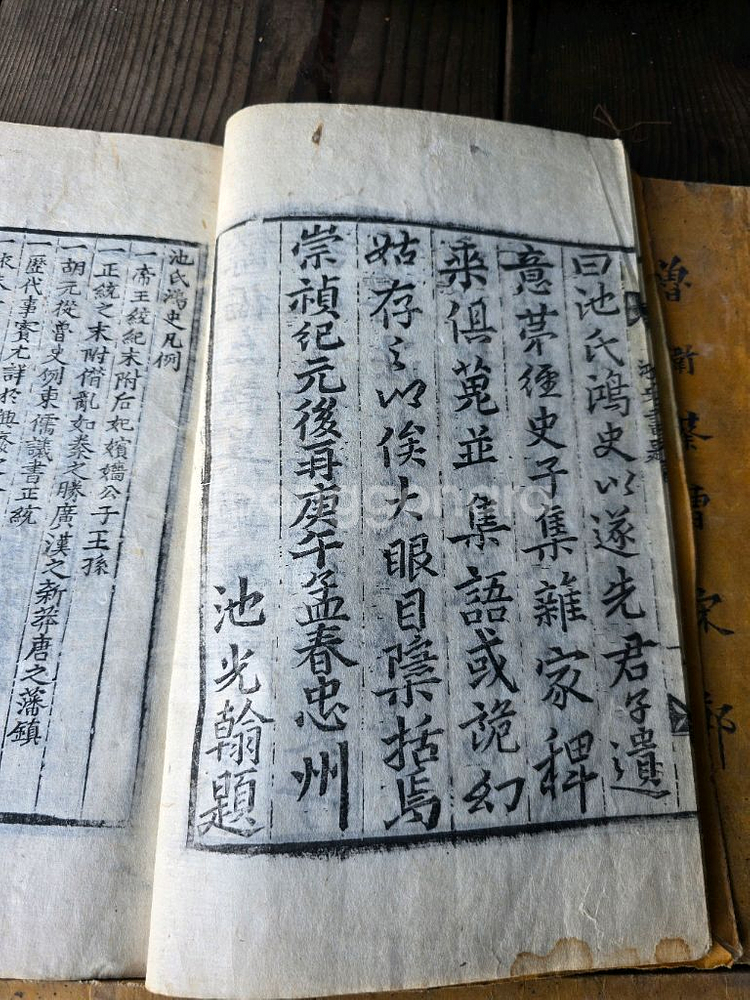 曰池氏鴻史以遂先君子遺
意第經史子集雜家稗
乘俱蒐並集語或詭幻
姑存之以俟大眼目檃括焉
崇禎紀元後再庚午孟春忠州
池光翰題
池氏鴻史凡例
一帝王綴紀末附后妃嬪嬙公子王孫
一正統之末附僭亂如秦之勝廣漢之新莽唐之藩鎭
一胡元從魯史例東儒議書正統
一歷代事實尤詳於
魯
衛
蔡
曹
宋
鄭
monggonara